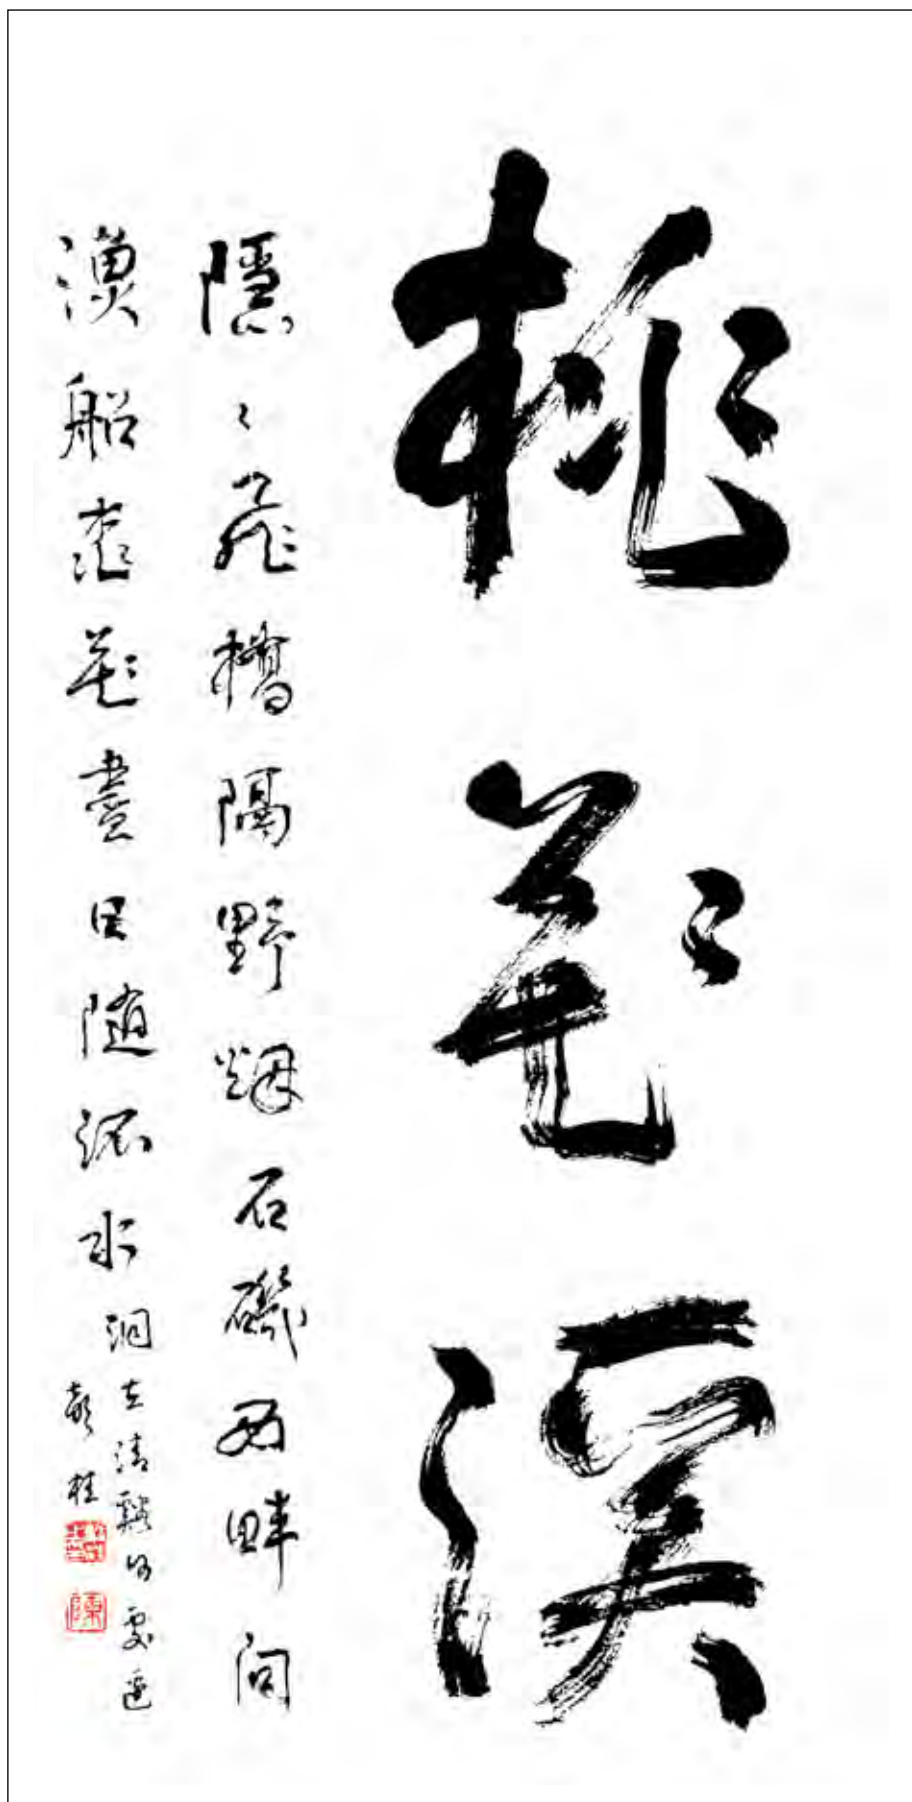 桃花溪
隱〻飛橋隔野煙石磯西畔問
漁船桃花盡日隨流水洞
在清谿何處邊
陳